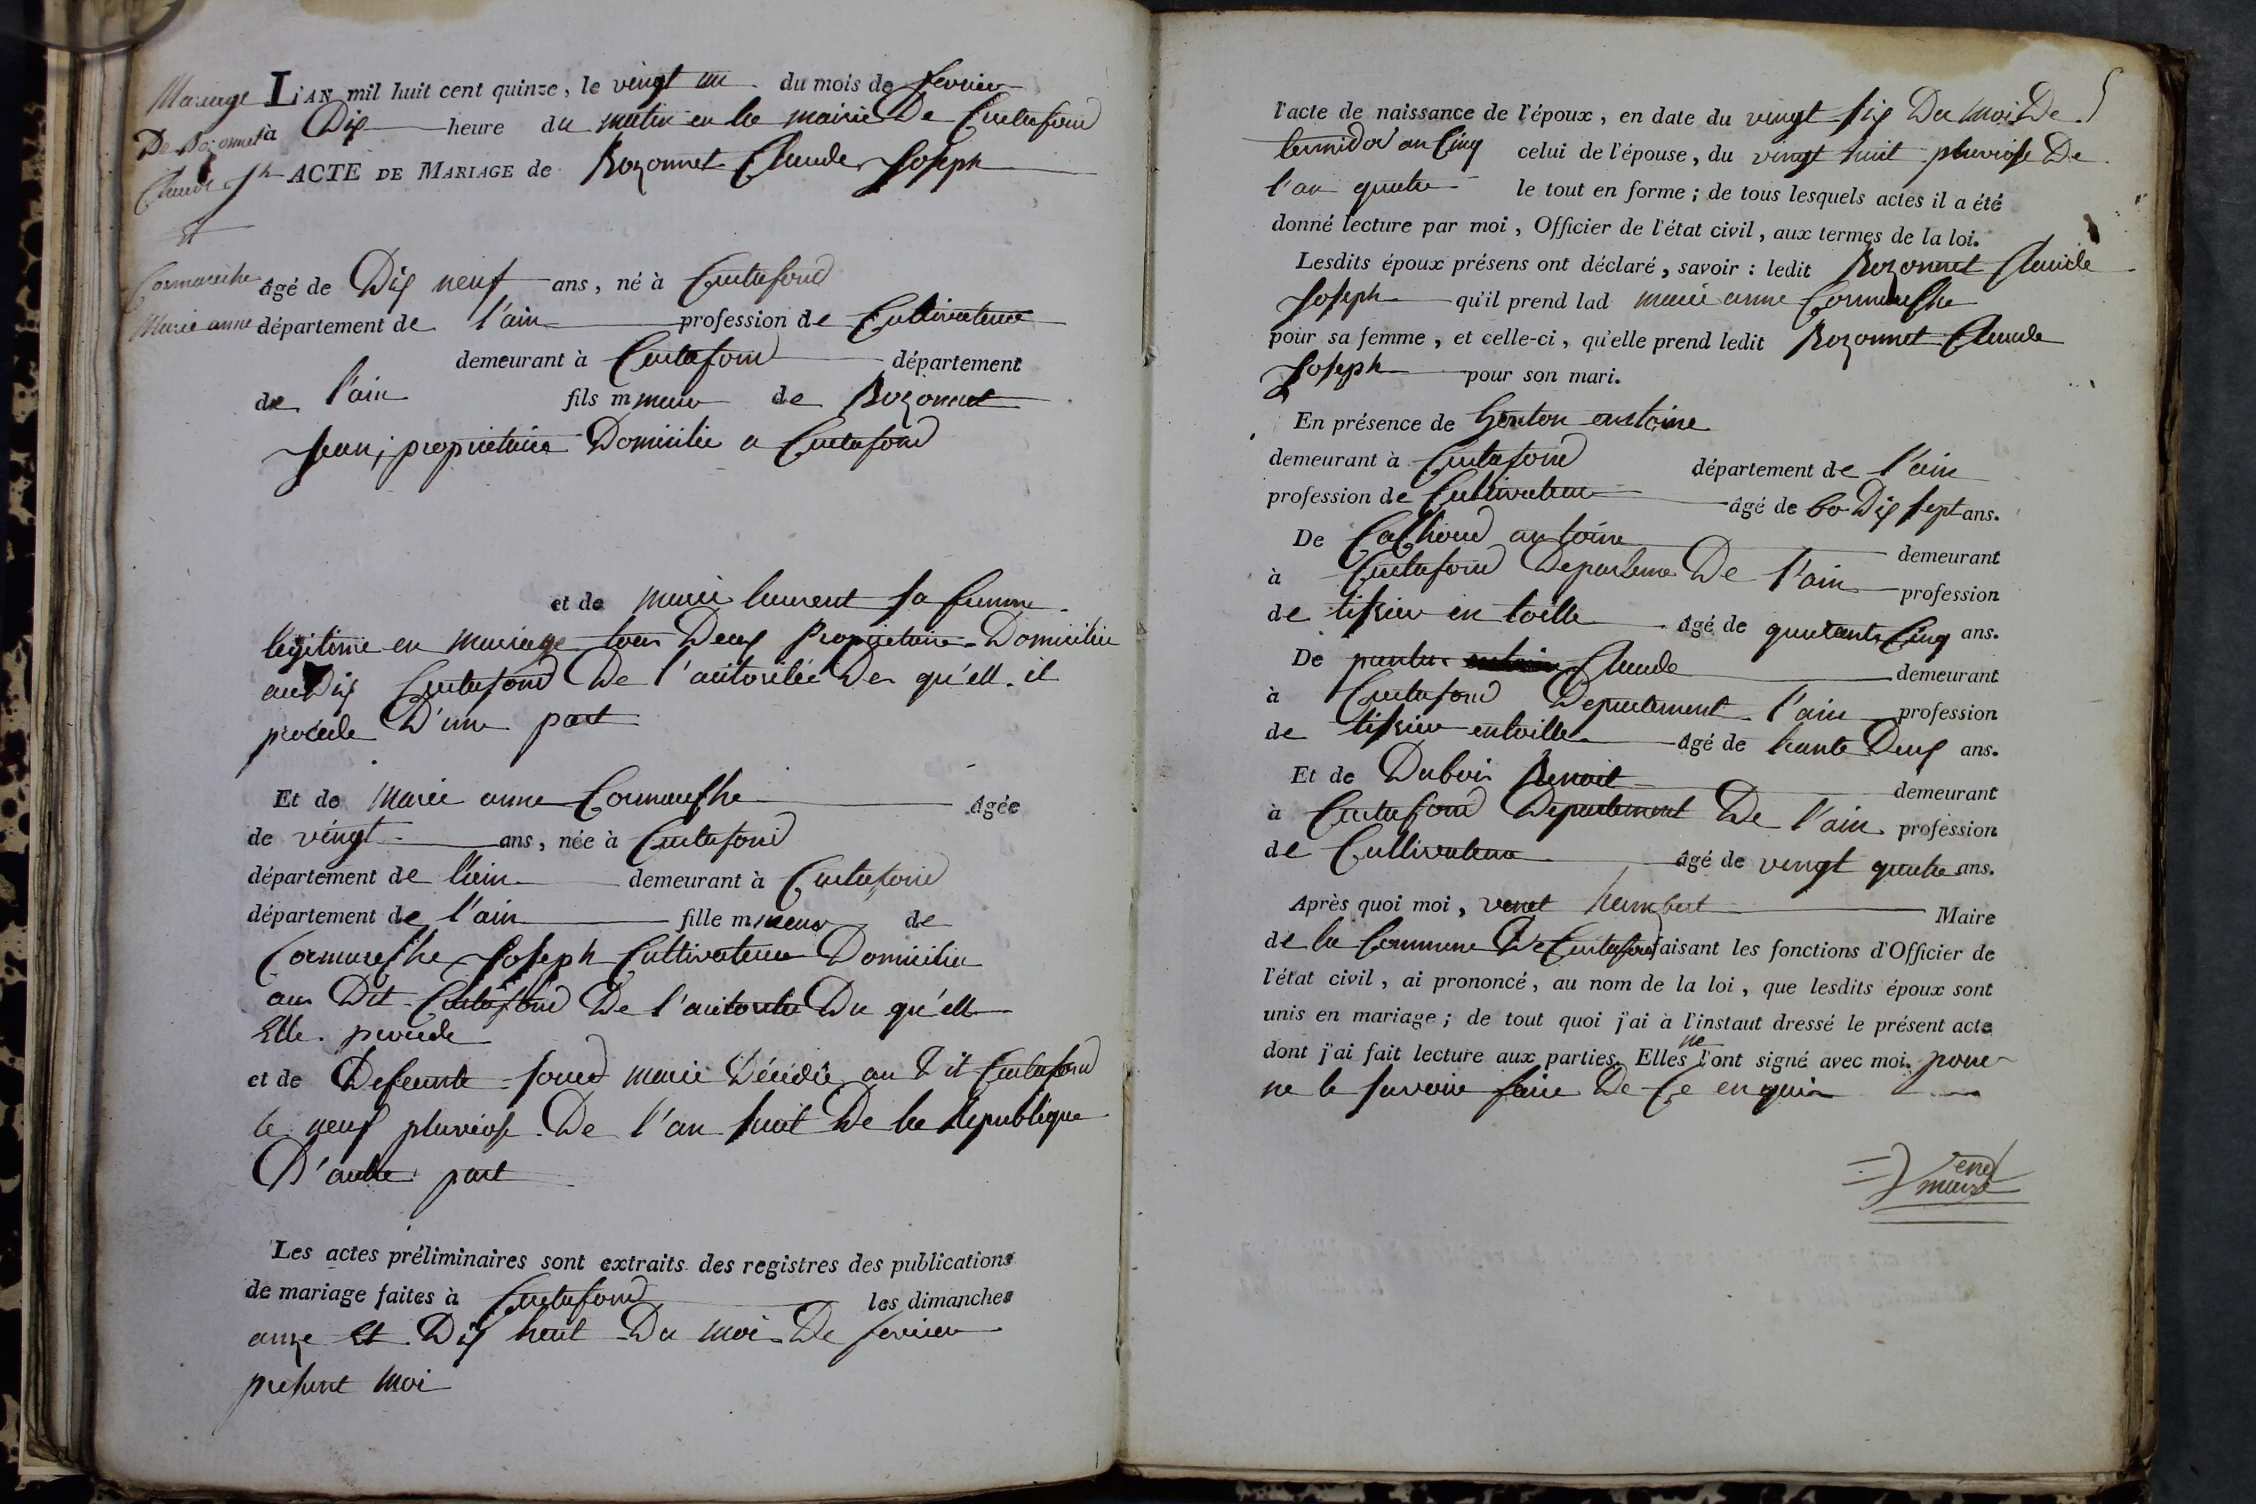 Mariage
De Rozonnet
Claude Jh
Et
Cormareche
Marie anne
L'AN mil huit cent quinze, le vingt un du mois de fevrier
à Dix heure du matin en la mairie De Curtafond
ACTE DE MARIAGE de Rozonnet Claude Joseph
âgé de Dix neuf ans, né à Curtafond
département de l'ain profession de Cultivateur
demeurant à Curtafond département
de l'ain fils mineur de Rozonnet
Jean, propriétaire Domicilie a Curtafond
et de marie laurent sa femme
légitime en mariage tous Deux Propriétaire Domicilie
au Dit Curtafond De l'autorité Des qu'ell. il
procede D'une part
Et de Marie anne Cormareche âgée
de vingt ans, née à Curtafond
département de l'ain demeurant à Curtafond
département de l'ain fille mineur de
Cormareche Joseph Cultivateur Domicilie
au Dit Curtafond De l'autorité Du qu'ell
Elle procede
et de Defeunte foued marie Décédée au Dit Curtafond
le neuf pluviose De l'an huit De la Republique
D'autre part
Les actes préliminaires sont extraits des registres des publications
de mariage faites à Curtafond les dimanches
onze et Dix heut Du moi De fevrier
present moi
5
l'acte de naissance de l'époux, en date du vingt six Du mois De
termidor an Cinq celui de l'épouse, du vingt huit pluviose De
l'an quatre le tout en forme; de tous lesquels actes il a été
donné lecture par moi, Officier de l'état civil, aux termes de la loi.
Lesdits époux présens ont déclaré, savoir : ledit Rozonnet Claude
Joseph qu'il prend lad marie anne Cormareche
pour sa femme, et celle-ci, qu'elle prend ledit Rozonnet Claude
Joseph pour son mari.
En présence de Genton antoine
demeurant à Curtafond département de l'ain
profession de Cultivateur âgé de 60 Dix sept ans.
De Cochoud antoine demeurant
à Curtafond Departeme De l'ain profession
de tissieu en toille âgé de quarante Cinq ans.
De Claude demeurant
à Curtafond Departement l'ain profession
de tissieu en toille âgé de trante Deux ans.
Et de Dubois Benoit demeurant
à Curtafond Departement De l'ain profession
de Cultivateur âgé de vingt quatre ans.
Après quoi moi, venet humbert Maire
de la Commune De Curtafond faisant les fonctions d'Officier de
l'état civil, ai prononcé, au nom de la loi, que lesdits époux sont
unis en mariage; de tout quoi j'ai à l'instaut dressé le présent acte
dont j'ai fait lecture aux parties. Elles ne l'ont signé avec moi. pour
ne le savoire faire De Ce enquis
Venet
maire